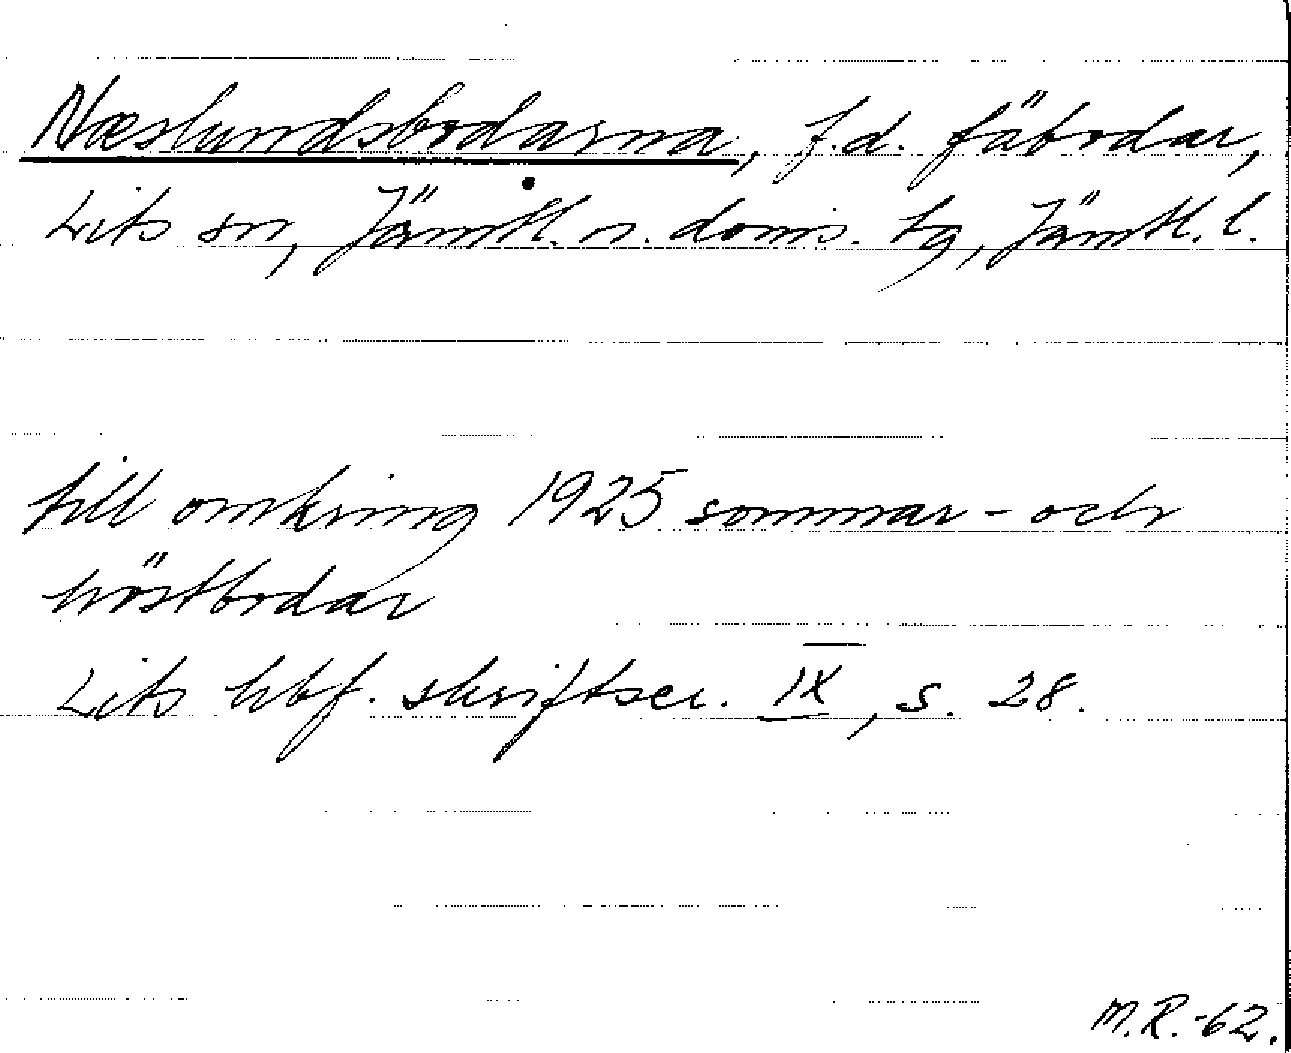 Næslundsbodarna, f.d. fäbodar,
Lits sn, Jämtl. n. doms. tg, Jämtl. l.
till omkring 1925 sommar- och
höstbodar
Lits hbf. skriftser. IX, s. 28.
M.R.-62.